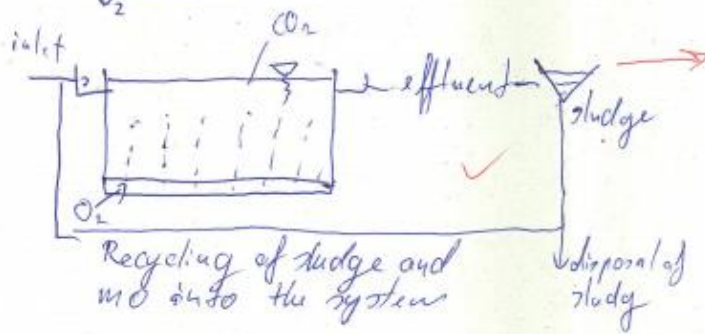 CO₂
inlet
effluent
sludge
O₂
Recycling of sludge and
mo into the system
disposal of
sludg